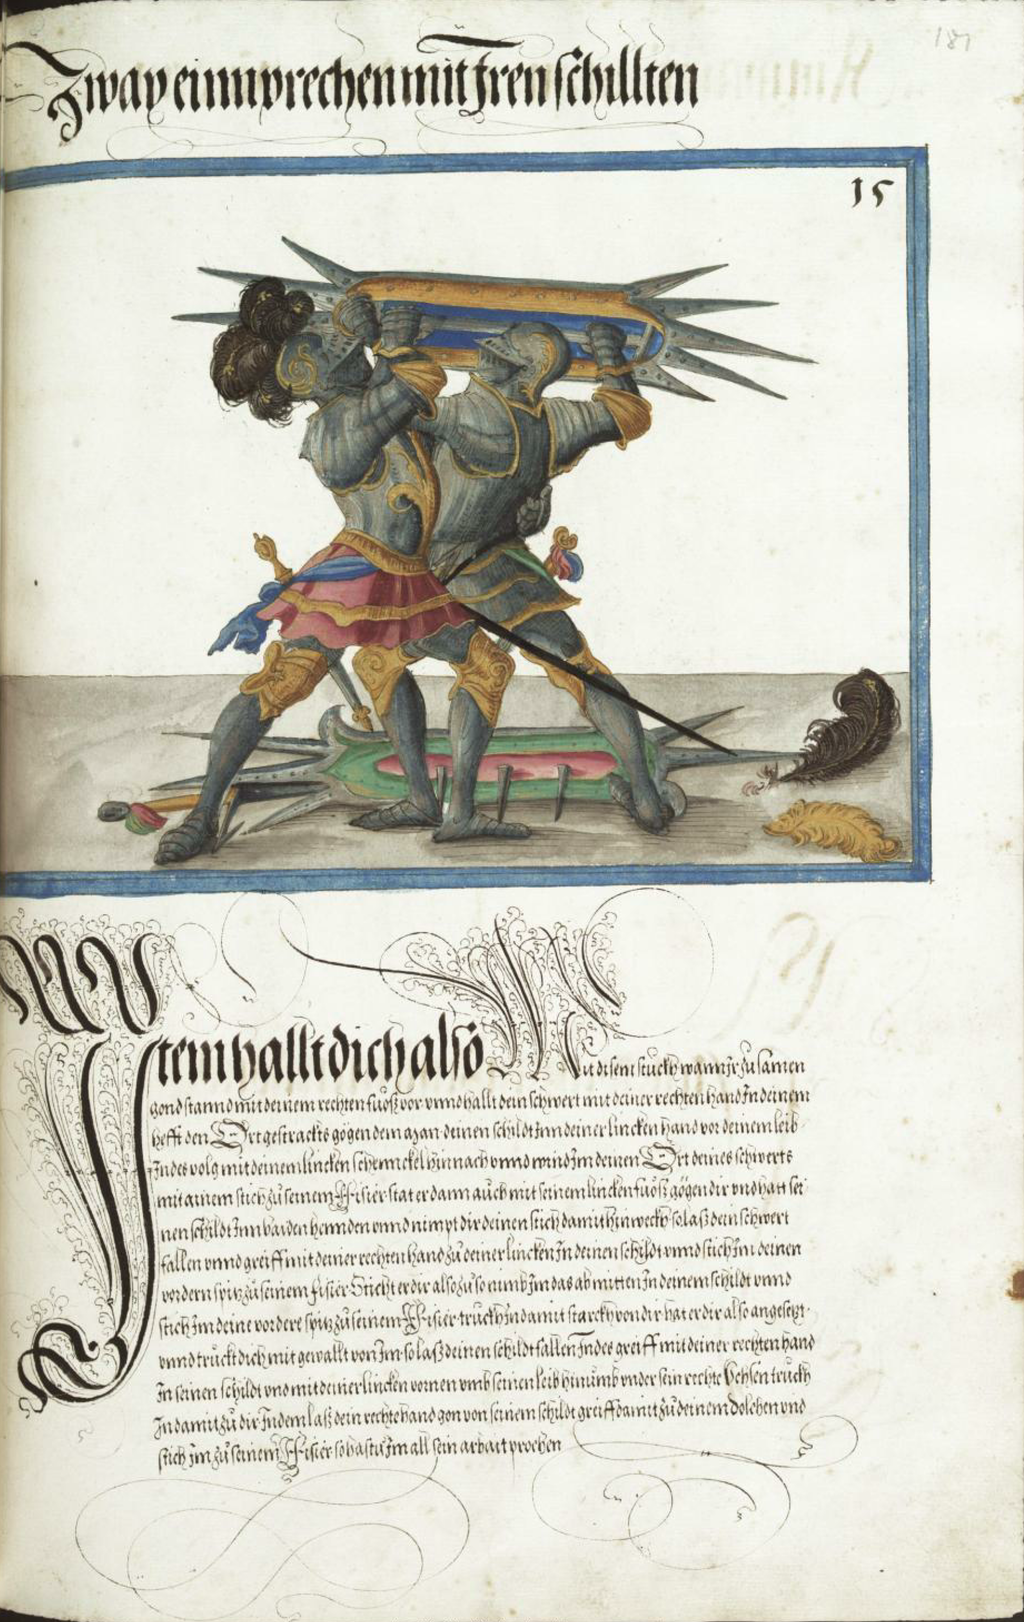 181
Zway einnprechen mit Iren schillten
15
Item hallt dich also Mit disem stuckh wann Ir zusamen
gond stannd mit deinem rechten fuosz vor vnnd hallt dein schwert mit deiner rechten hand In deinem
hefft den Ort gestrackts gögen dem man deinen schildt Inn deiner lincken hand vor deinem leib
Indes volg mit deinem lincken schennckel hinnach vnnd wind Im deinen Ort deines schwerts
mit ainem stich zu seinem Fisier stat er dann auch mit seinem lincken fuosz gögen dir vnd hatt sei
nen schildt Inn baiden hennden vnnd nimpt dir deinen stich damit hinweckh so lasz dein schwert
fallen vnnd greiff mit deiner rechten hand zu deiner lincken In deinen schildt vnnd stich Im deinen
vordern spitz zu seinem fisier Sticht er dir also zu so nimb Im das ab mitten In deinem schildt vnnd
stich Im deine vordere spitz zu seinem Fisier truckh In damit starckh von dir hat er dir also angesetzt
vnnd truckt dich mit gewallt von Im so lasz deinen schildt fallen Indes greiff mit deiner rechten hand
In seinen schildt vnd mit deiner lincken vornen vmb seinen leib hinumb vnder sein rechte Vchsen truckh
In damit zu dir Indem lasz dein rechte hand gon von seinem schildt greiff damit zu deinem dolchen vnd
stich Im zu seinem Fisier so hastu Im all sein arbait prochen